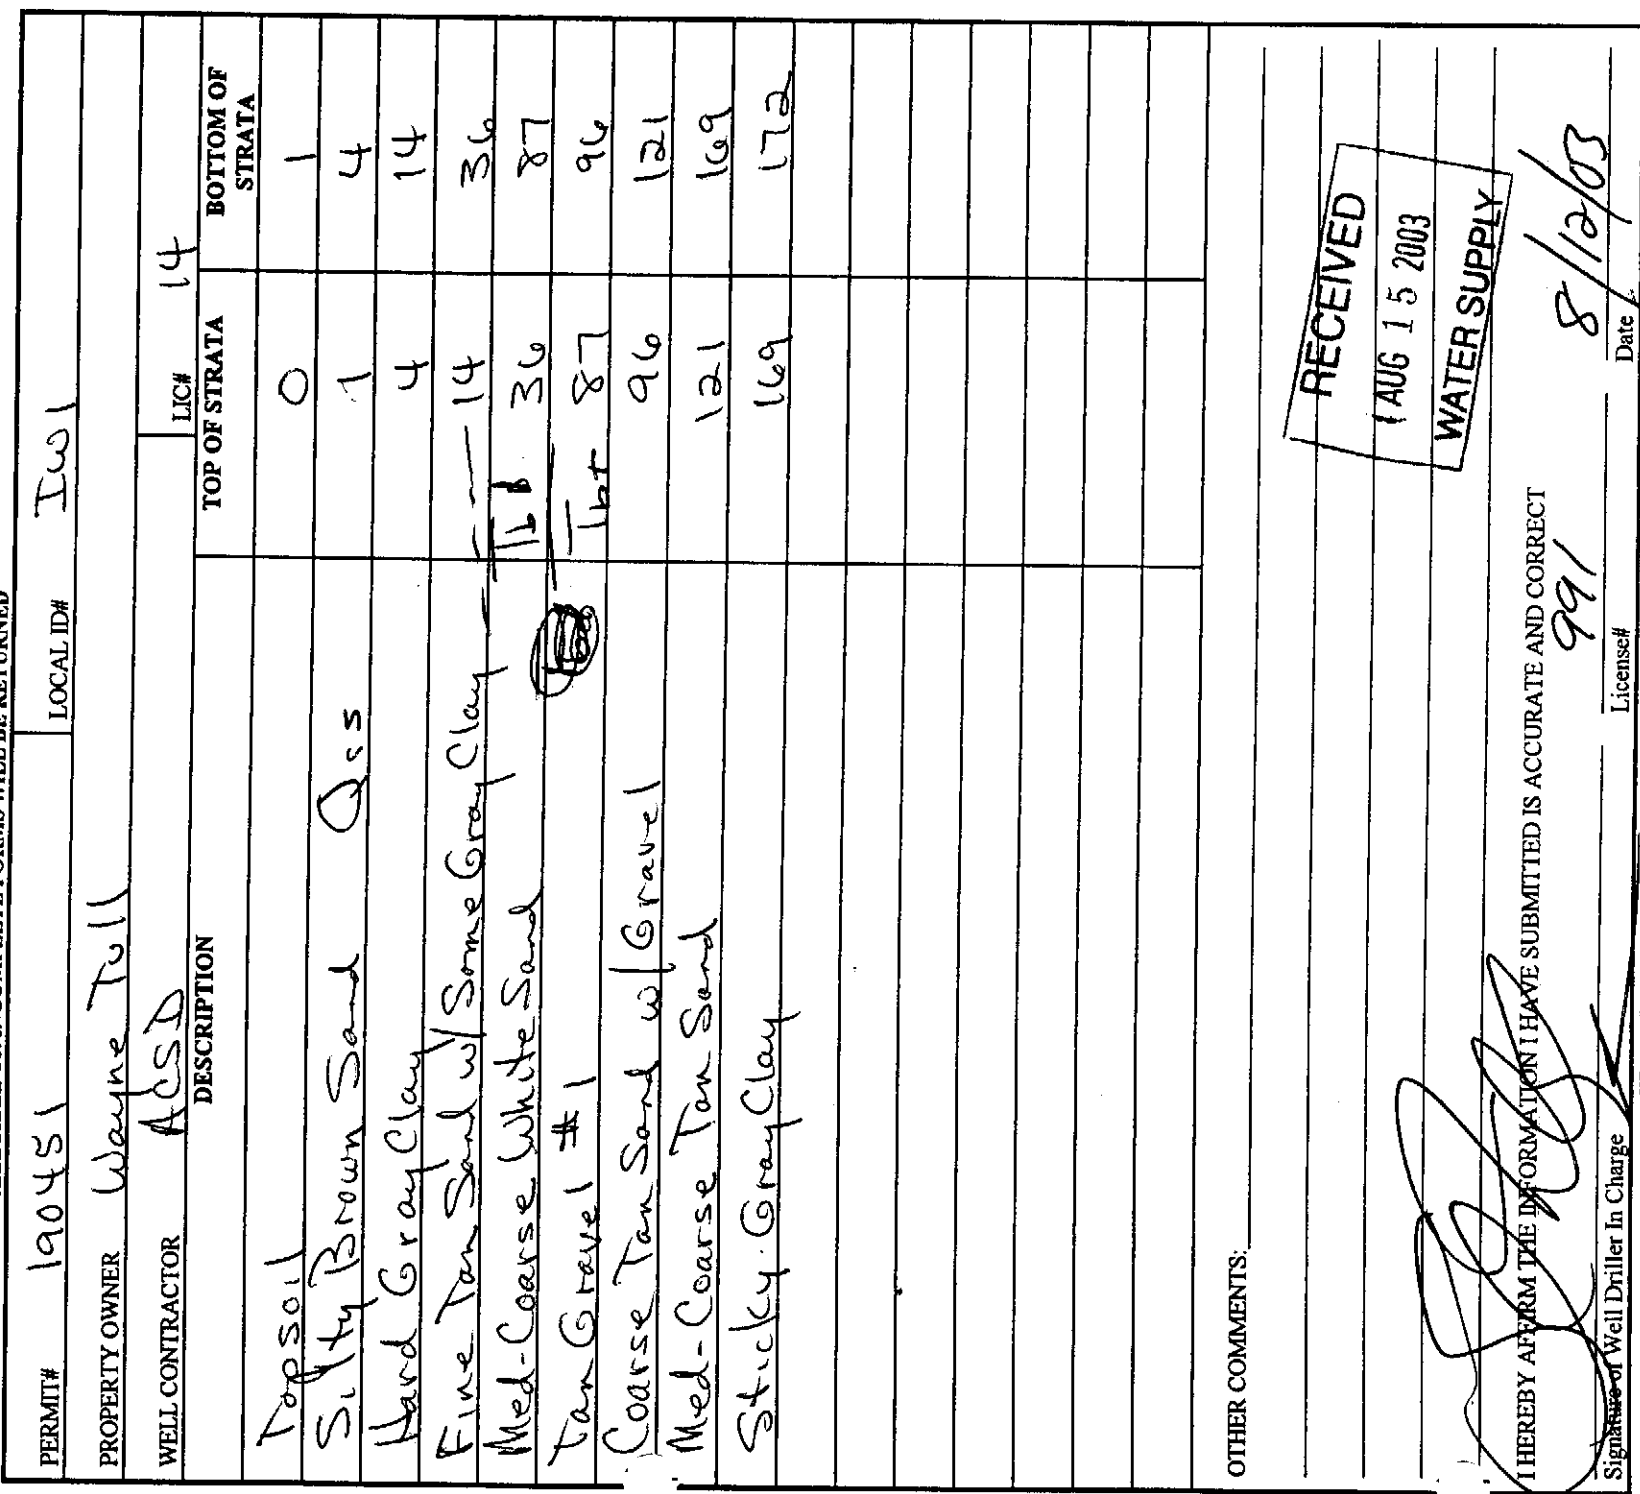 PERMIT# 190451 LOCAL ID# IW1
PROPERTY OWNER Wayne Tull
WELL CONTRACTOR ACSD LIC# 14
DESCRIPTION TOP OF STRATA BOTTOM OF STRATA
Topsoil 0 1
Silty Brown Sand Qss 1 4
Hard Gray Clay 4 14
Fine Tan Sand w/ Some Gray Clay 14 36
Med-Coarse White Sand 36 87
Tan Gravel #1 Tbt 87 96
Coarse Tan Sand w/ Gravel 96 121
Med-Coarse Tan Sand 121 169
Sticky Gray Clay 169 172
OTHER COMMENTS:
RECEIVED
AUG 15 2003
WATER SUPPLY
I HEREBY AFFIRM THE INFORMATION I HAVE SUBMITTED IS ACCURATE AND CORRECT
991 8/12/03
Signature of Well Driller In Charge License# Date